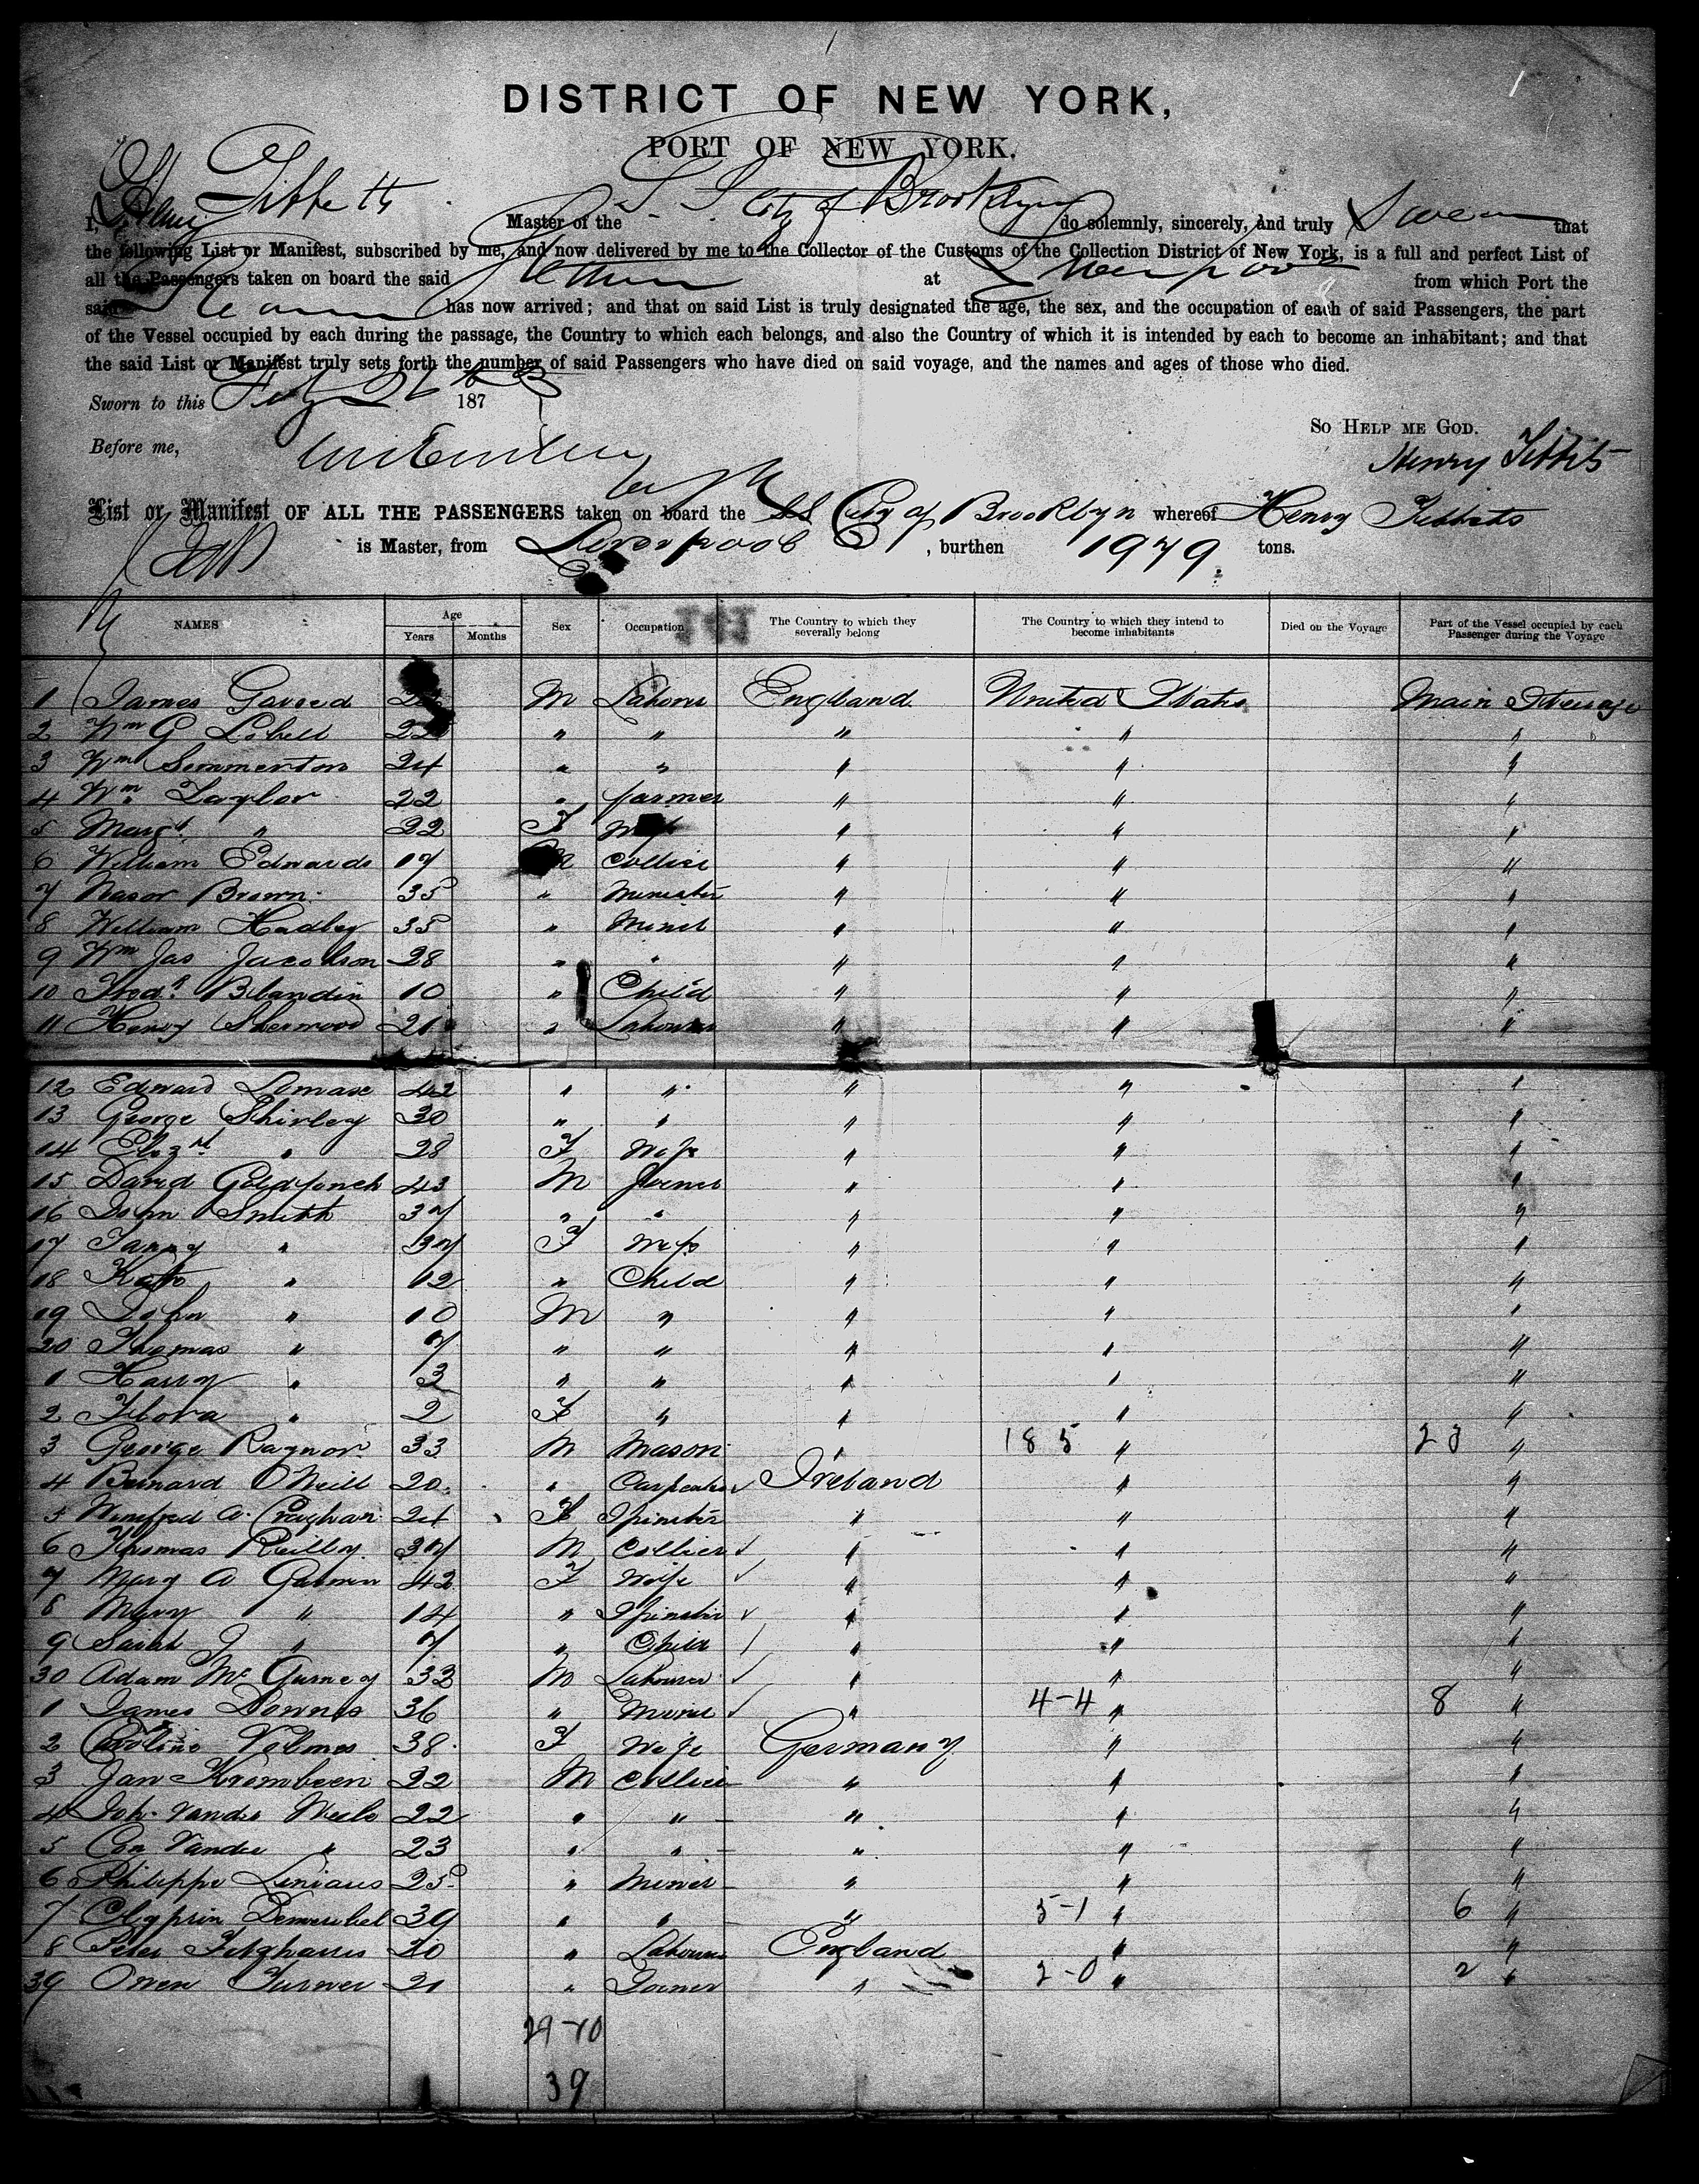 DISTRICT OF NEW YORK,
PORT OF NEW YORK.
I, Henry Tibbetts Master of the S S City of Brooklyn do solemnly, sincerely, and truly Swear that
the following List or Manifest, subscribed by me, and now delivered by me to the Collector of the Customs of the Collection District of New York, is a full and perfect List of
all the Passengers taken on board the said at Liverpool from which Port the
said Steamer has now arrived; and that on said List is truly designated the age, the sex, and the occupation of each of said Passengers, the part
of the Vessel occupied by each during the passage, the Country to which each belongs, and also the Country of which it is intended by each to become an inhabitant; and that
the said List or Manifest truly sets forth the number of said Passengers who have died on said voyage, and the names and ages of those who died.
Sworn to this 187
So Help me God.
Before me,
Henry Tibbits
List or Manifest OF ALL THE PASSENGERS taken on board the SS City of Brooklyn whereof Henry Tibbits
is Master, from Liverpool, burthen 1979 tons.
NAMES Age Years Months Sex Occupation The Country to which they severally belong The Country to which they intend to become inhabitants Died on the Voyage Part of the Vessel occupied by each Passenger during the Voyage
1 James M England United States Main Steerage
2 Wm G 22 " " " " "
3 Wm Summerton 24 " " " " "
4 Wm Taylor 22 " farmer " " "
5 Margt " 22 F Wife " " "
6 William Edwards 17 M Collier " " "
7 Brown 35 " Minister " " "
8 William Hadley 35 " Miner " " "
9 Wm Jas Jacobson 28 " " " " "
10 Blandin 10 " Child " " "
11 Henry Sherwood 21 " Labourer " " "
12 Edward 42 " " " " "
13 George Shirley 30 " " " " "
14 " 28 F Wife " " "
15 David Goldfinch 43 M Joiner " " "
16 John Smith 37 " " " " "
17 " 37 F Wife " " "
18 Kate " 12 " Child " " "
19 John " 10 M " " " "
20 Thomas " 7 " " " " "
1 Harry " 3 " " " " "
2 Flora " 2 F " " " "
3 George Raynor 33 M Mason " 18 5 " 23 "
4 Bernard O'Neill 20 " Carpenter Ireland " "
5 Winifred A. 24 F Spinster " " "
6 Thomas Reilly 37 M Collier " " "
7 Mary A 42 F Wife " " "
8 Mary " 14 " Spinster " " "
9 Sarah J " 7 " Child " " "
30 Adam Mc 33 M Labourer " " "
1 James Downs 36 " Miner " 4-4 " 8 "
2 Caroline 38 F Wife Germany " "
3 Jan Krombeen 22 M Collier " " "
4 Joh. Vander 22 " " " " "
5 Vander " 23 " " " " "
6 Philippe 25 " Miner " " "
7 39 " " " 5-1 " 6 "
8 Peter Fitzharris 20 " Labourer England " "
39 Owen Turner 21 " Joiner " 2-0 " 2 "
29-10
39